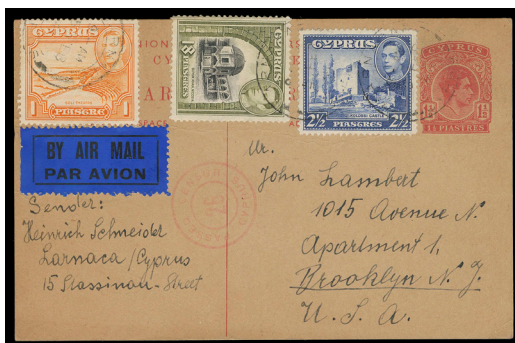 CYPRUS
1 PIASTRE 1
CYPRUS
8 PIASTRES
CYPRUS
KOLOSSI CASTLE
2½ PIASTRES 2½
CYPRUS
1½ 1½
1½ PIASTRES
BY AIR MAIL
PAR AVION
Sender:
Heinrich Schneider
Larnaca / Cyprus
15 Stassinou - Street
Mr.
John Lambert
1015 Avenue N.
Apartment 1,
Brooklyn N. J.
U. S. A.